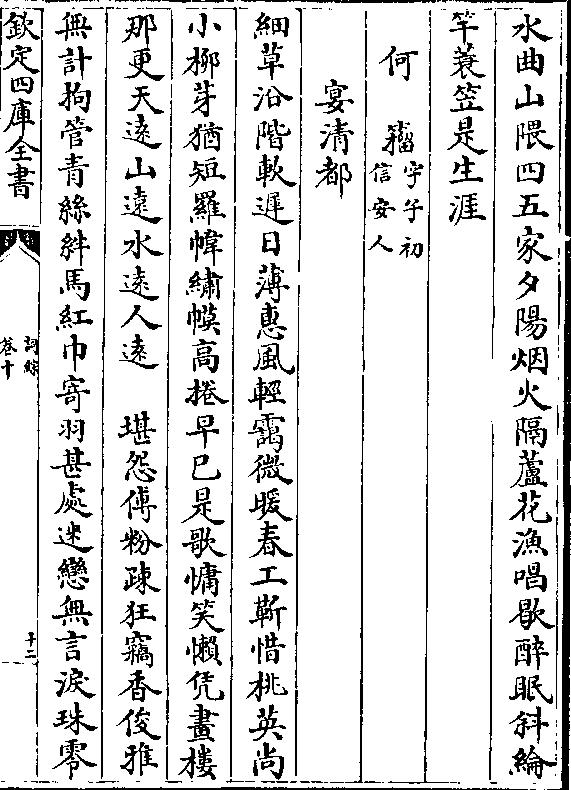 水曲山隈四五家夕陽烟火隔蘆花漁唱歇醉眠斜綸
竿蓑笠是生涯
何籀字子初信安人
宴清都
細草沿階軟遲日薄惠風輕靄微暖春工靳惜桃英尚
小柳芽猶短羅幃繡幙高捲早已是歌慵笑懶凭畫樓
那更天遠山遠水遠人遠　堪怨傅粉疎狂竊香俊雅
無計拘管青絲絆馬紅巾寄羽甚處迷戀無言淚珠零
欽定四庫全書
詞綜
卷十
十二